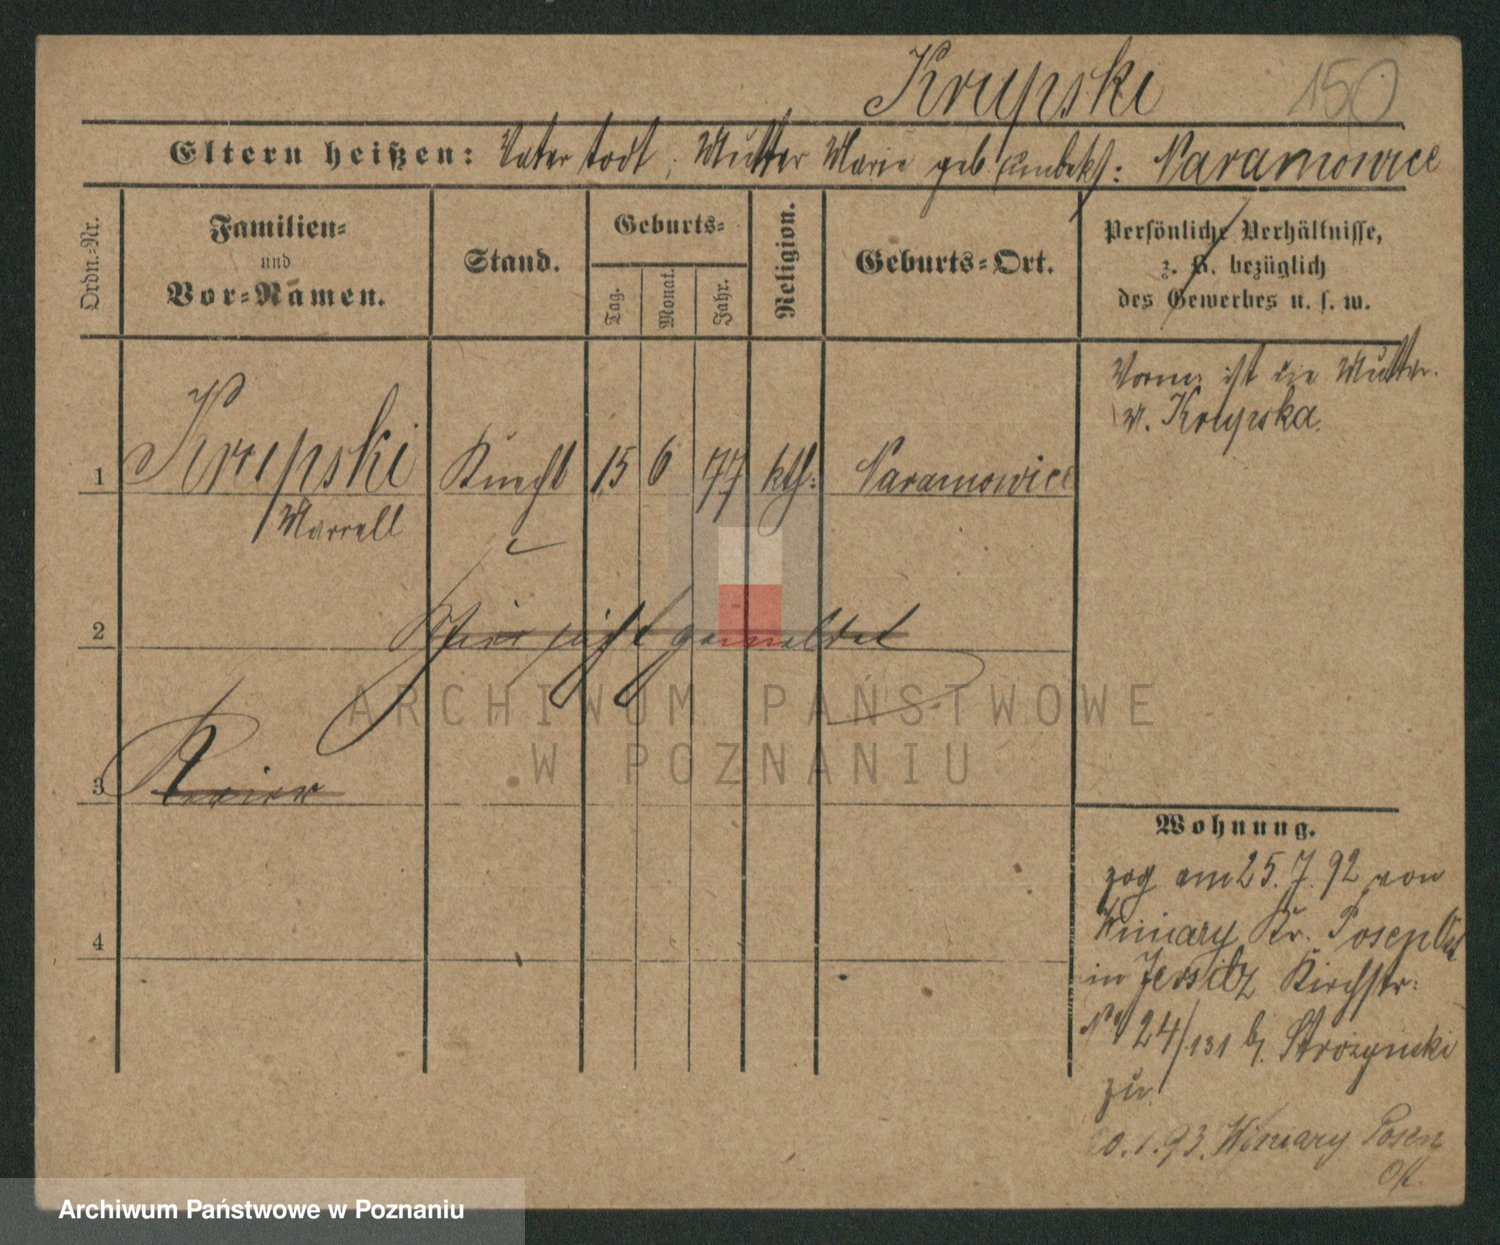 Krupski 150
Eltern heißen: Vater todt, Mutter Marie geb. unbekt: Naramowice
Ordn.-Nr.
Familien-
und
Vor-Namen.
Stand.
Geburts-
Tag.
Monat.
Jahr.
Religion.
Geburts-Ort.
Persönliche Verhältnisse,
z. B. bezüglich
des Gewerbes u. s. w.
1 Krupski Knecht 15 6 77 kth: Naramowice
Marcell
ist die Mutter
Krupska
2 Hier nicht gemeldet
3 Revier
4
Wohnung.
zog am 25. 7. 92 von
Winiary Kr. Posen Ost
in Jersitz Kirchstr:
No 24/131 b/.
zu.
20.1.93. Winiary Posen
ARCHIWUM PAŃSTWOWE
W POZNANIU
Archiwum Państwowe w Poznaniu